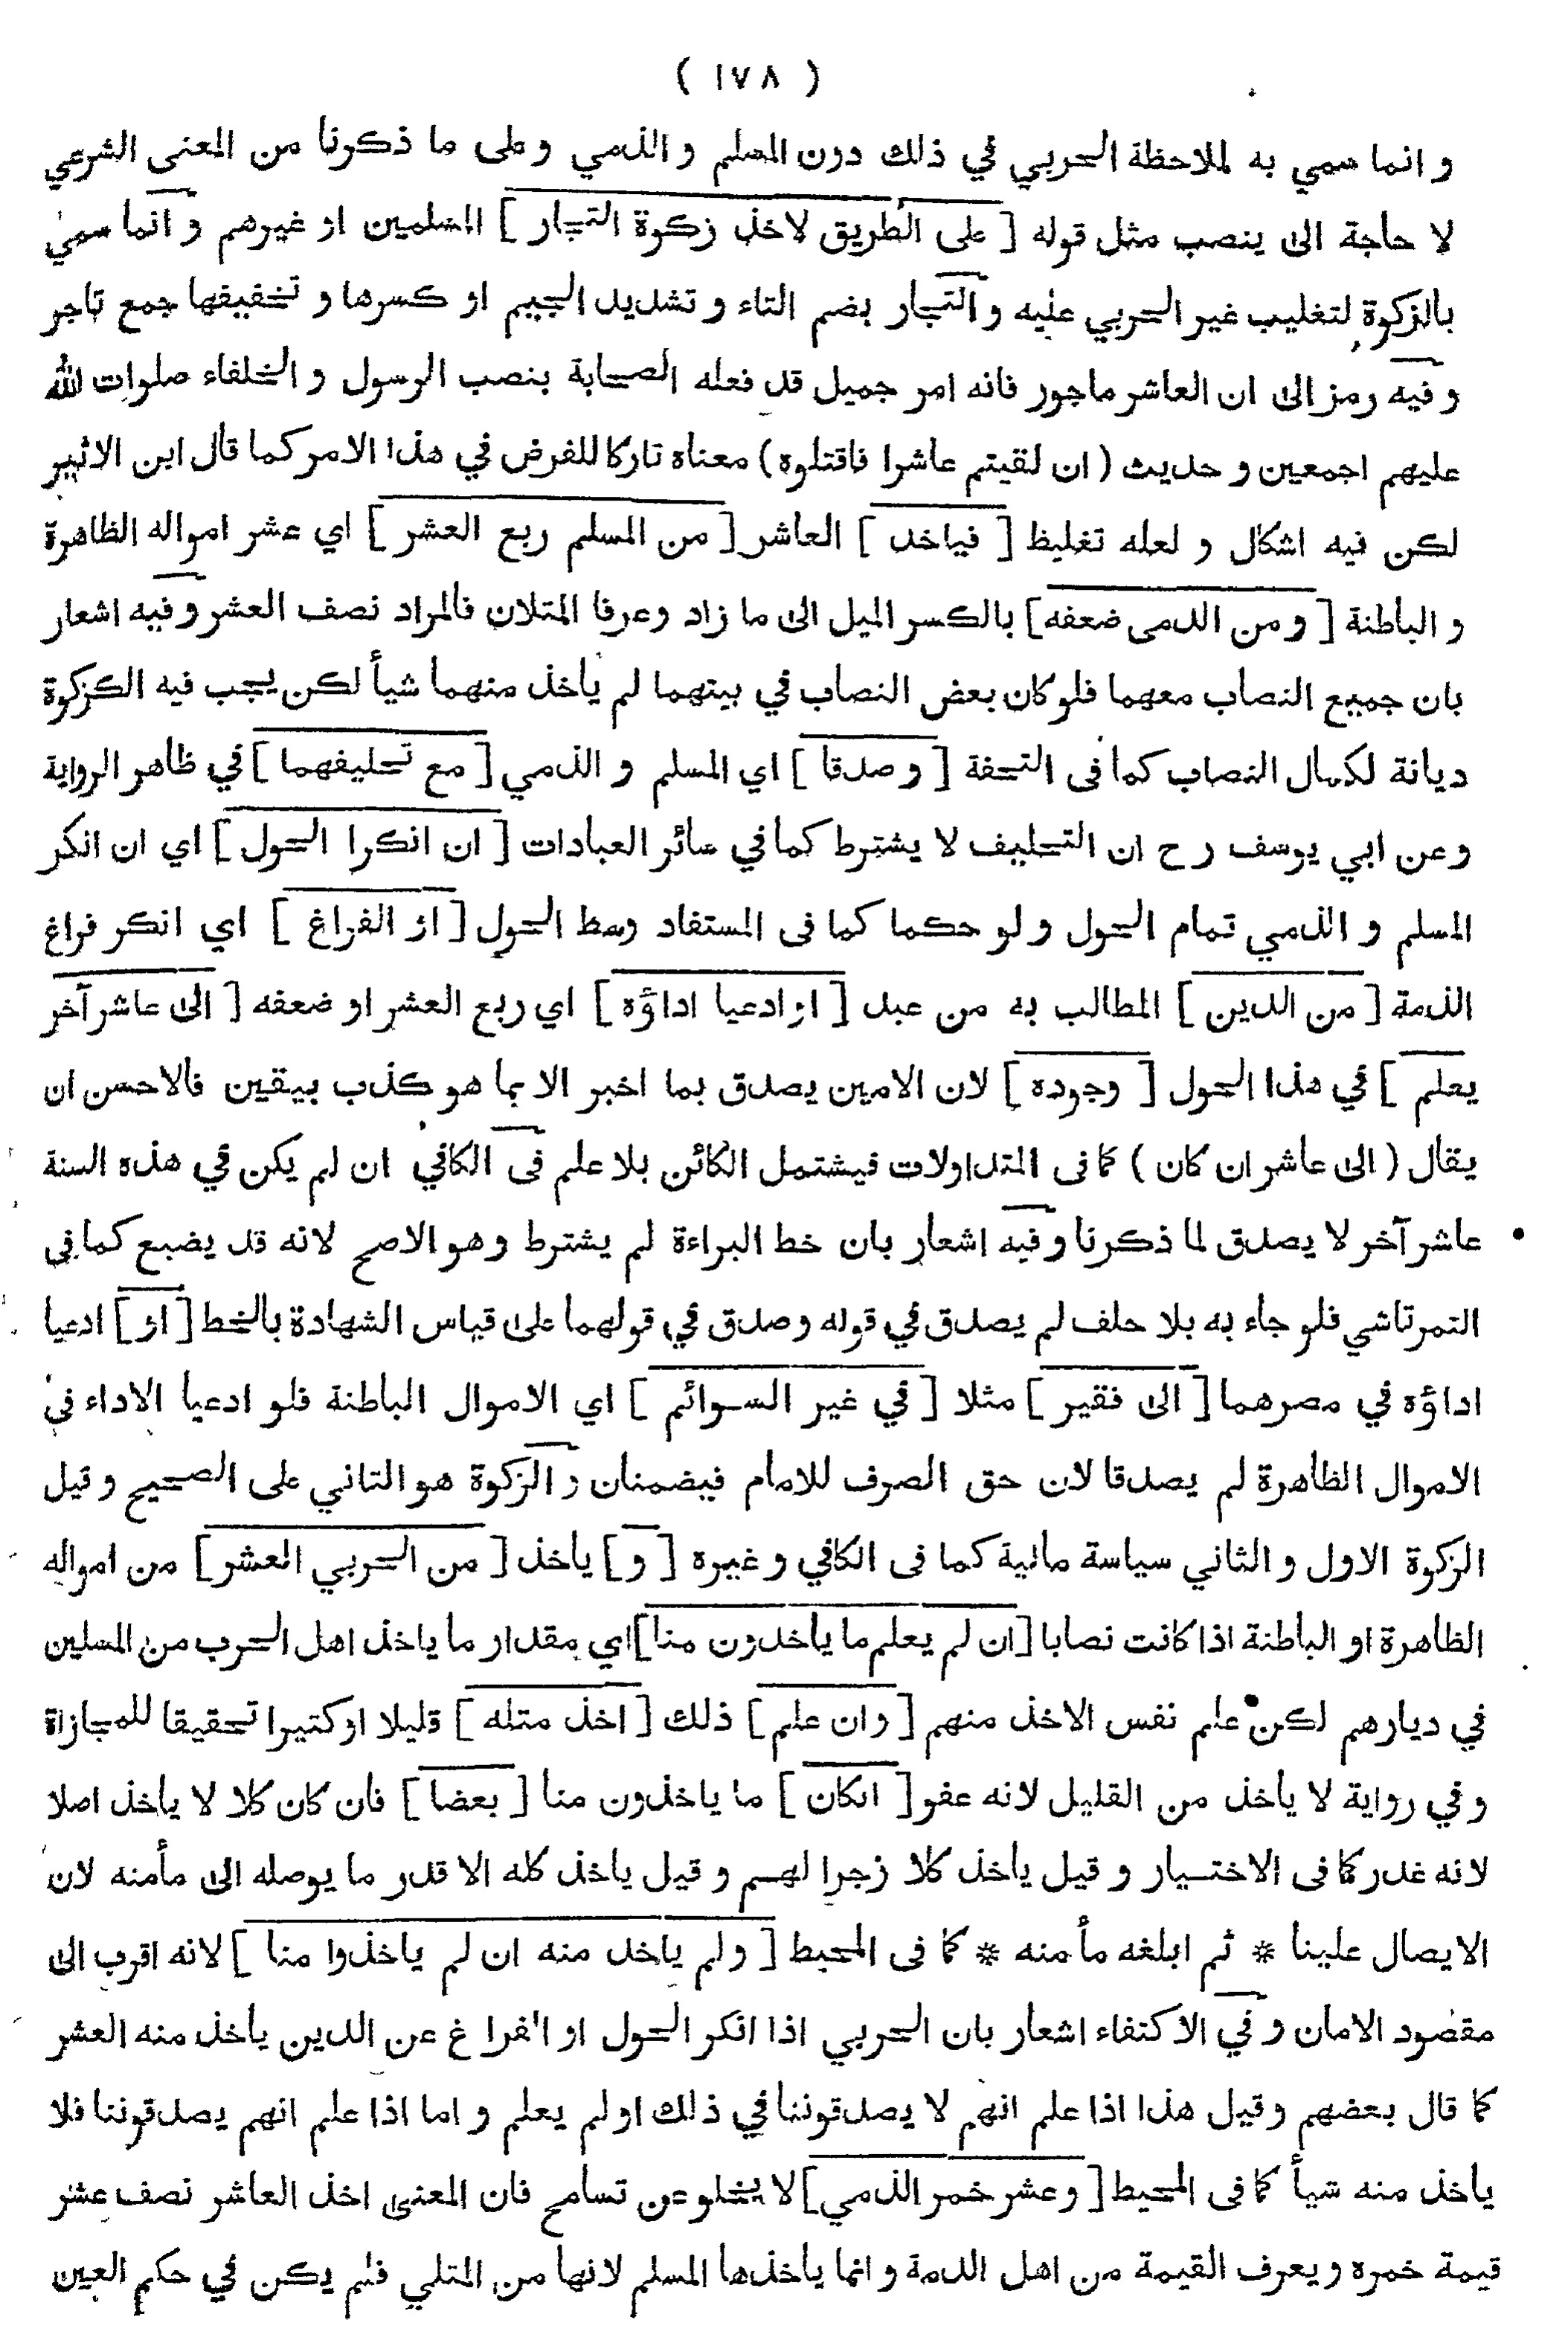 ( ١٧٨ )
و انما سمي به لملاحظة الحربي في ذلك دون المسلم و الذمي و على ما ذكرنا من المعنى الشرعي
لا حاجة الى ينصب مثل قوله [ على الطريق لاخذ زكوة التجار ] المسلمين او غيرهم و انما سمي
بالزكوة لتغليب غير الحربي عليه و التجار بضم التاء و تشديد الجيم او كسرها و تخفيفها جمع تاجر
و فيه رمز الى ان العاشر ماجور فانه امر جميل قد فعله الصحابة بنصب الرسول و الخلفاء صلوات الله
عليهم اجمعين و حديث ( ان لقيتم عاشرا فاقتلوه ) معناه تاركا للفرض في هذا الامر كما قال ابن الاثير
لكن فيه اشكال و لعله تغليظ [ فياخذ ] العاشر [ من المسلم ربع العشر ] اي عشر امواله الظاهرة
و الباطنة [ و من الذمى ضعفه ] بالكسر الميل الى ما زاد وعرفا المثلان فالمراد نصف العشر و فيه اشعار
بان جميع النصاب معهما فلو كان بعض النصاب في بيتهما لم يأخذ منهما شيأ لكن يجب فيه الكزكوة
ديانة لكمال النصاب كما فى التحفة [ و صدقا ] اي المسلم و الذمي [ مع تحليفهما ] في ظاهر الرواية
وعن ابي يوسف رح ان التحليف لا يشترط كما في سائر العبادات [ ان انكرا الحول ] اي ان انكر
المسلم و الذمي تمام الحول و لو حكما كما فى المستفاد وسط الحول [ او الفراغ ] اي انكر فراغ
الذمة [ من الدين ] المطالب به من عبد [ او ادعيا اداؤه ] اي ربع العشر او ضعفه [ الى عاشر آخر
يعلم ] في هذا الحول [ وجوده ] لان الامين يصدق بما اخبر الا بما هو كذب بيقين فالاحسن ان
يقال ( الى عاشر ان كان ) كما فى المتداولات فيشتمل الكائن بلا علم فى الكافي ان لم يكن في هذه السنة
عاشر آخر لا يصدق لما ذكرنا و فيه اشعار بان خط البراءة لم يشترط وهو الاصح لانه قد يضيع كما في
التمرتاشي فلو جاء به بلا حلف لم يصدق في قوله وصدق في قولهما على قياس الشهادة بالخط [ او ] ادعيا
اداؤه في مصرهما [ الى فقير ] مثلا [ في غير السوائم ] اي الاموال الباطنة فلو ادعيا الاداء في
الاموال الظاهرة لم يصدقا لان حق الصرف للامام فيضمنان و الزكوة هو الثاني على الصحيح و قيل
الزكوة الاول و الثاني سياسة مالية كما فى الكافي و غيره [ و ] يأخذ [ من الحربي العشر ] من امواله
الظاهرة او الباطنة اذا كانت نصابا [ ان لم يعلم ما يأخذون منا ] اي مقدار ما ياخذ اهل الحرب من المسلمين
في ديارهم لكن علم نفس الاخذ منهم [ وان علم ] ذلك [ اخذ مثله ] قليلا او كثيرا تحقيقا للمجازاة
و في رواية لا يأخذ من القليل لانه عفو [ انكان ] ما ياخذون منا [ بعضا ] فان كان كلا لا يأخذ اصلا
لانه غدر كما فى الاختيار و قيل يأخذ كلا زجرا لهم و قيل ياخذ كله الا قدر ما يوصله الى مأمنه لان
الايصال علينا * ثم ابلغه مأمنه * كما فى المحيط [ ولم ياخذ منه ان لم ياخذوا منا ] لانه اقرب الى
مقصود الامان و في الاكتفاء اشعار بان الحربي اذا انكر الحول او الفراغ عن الدين يأخذ منه العشر
كما قال بعضهم و قيل هذا اذا علم انهم لا يصدقوننا في ذلك او لم يعلم و اما اذا علم انهم يصدقوننا فلا
يأخذ منه شيأ كما فى المحيط [ و عشر خمر الذمي ] لا يخلو عن تسامح فان المعنى اخذ العاشر نصف عشر
قيمة خمره و يعرف القيمة من اهل الذمة و انما يأخذها المسلم لانها من المثلي فلم يكن في حكم العين